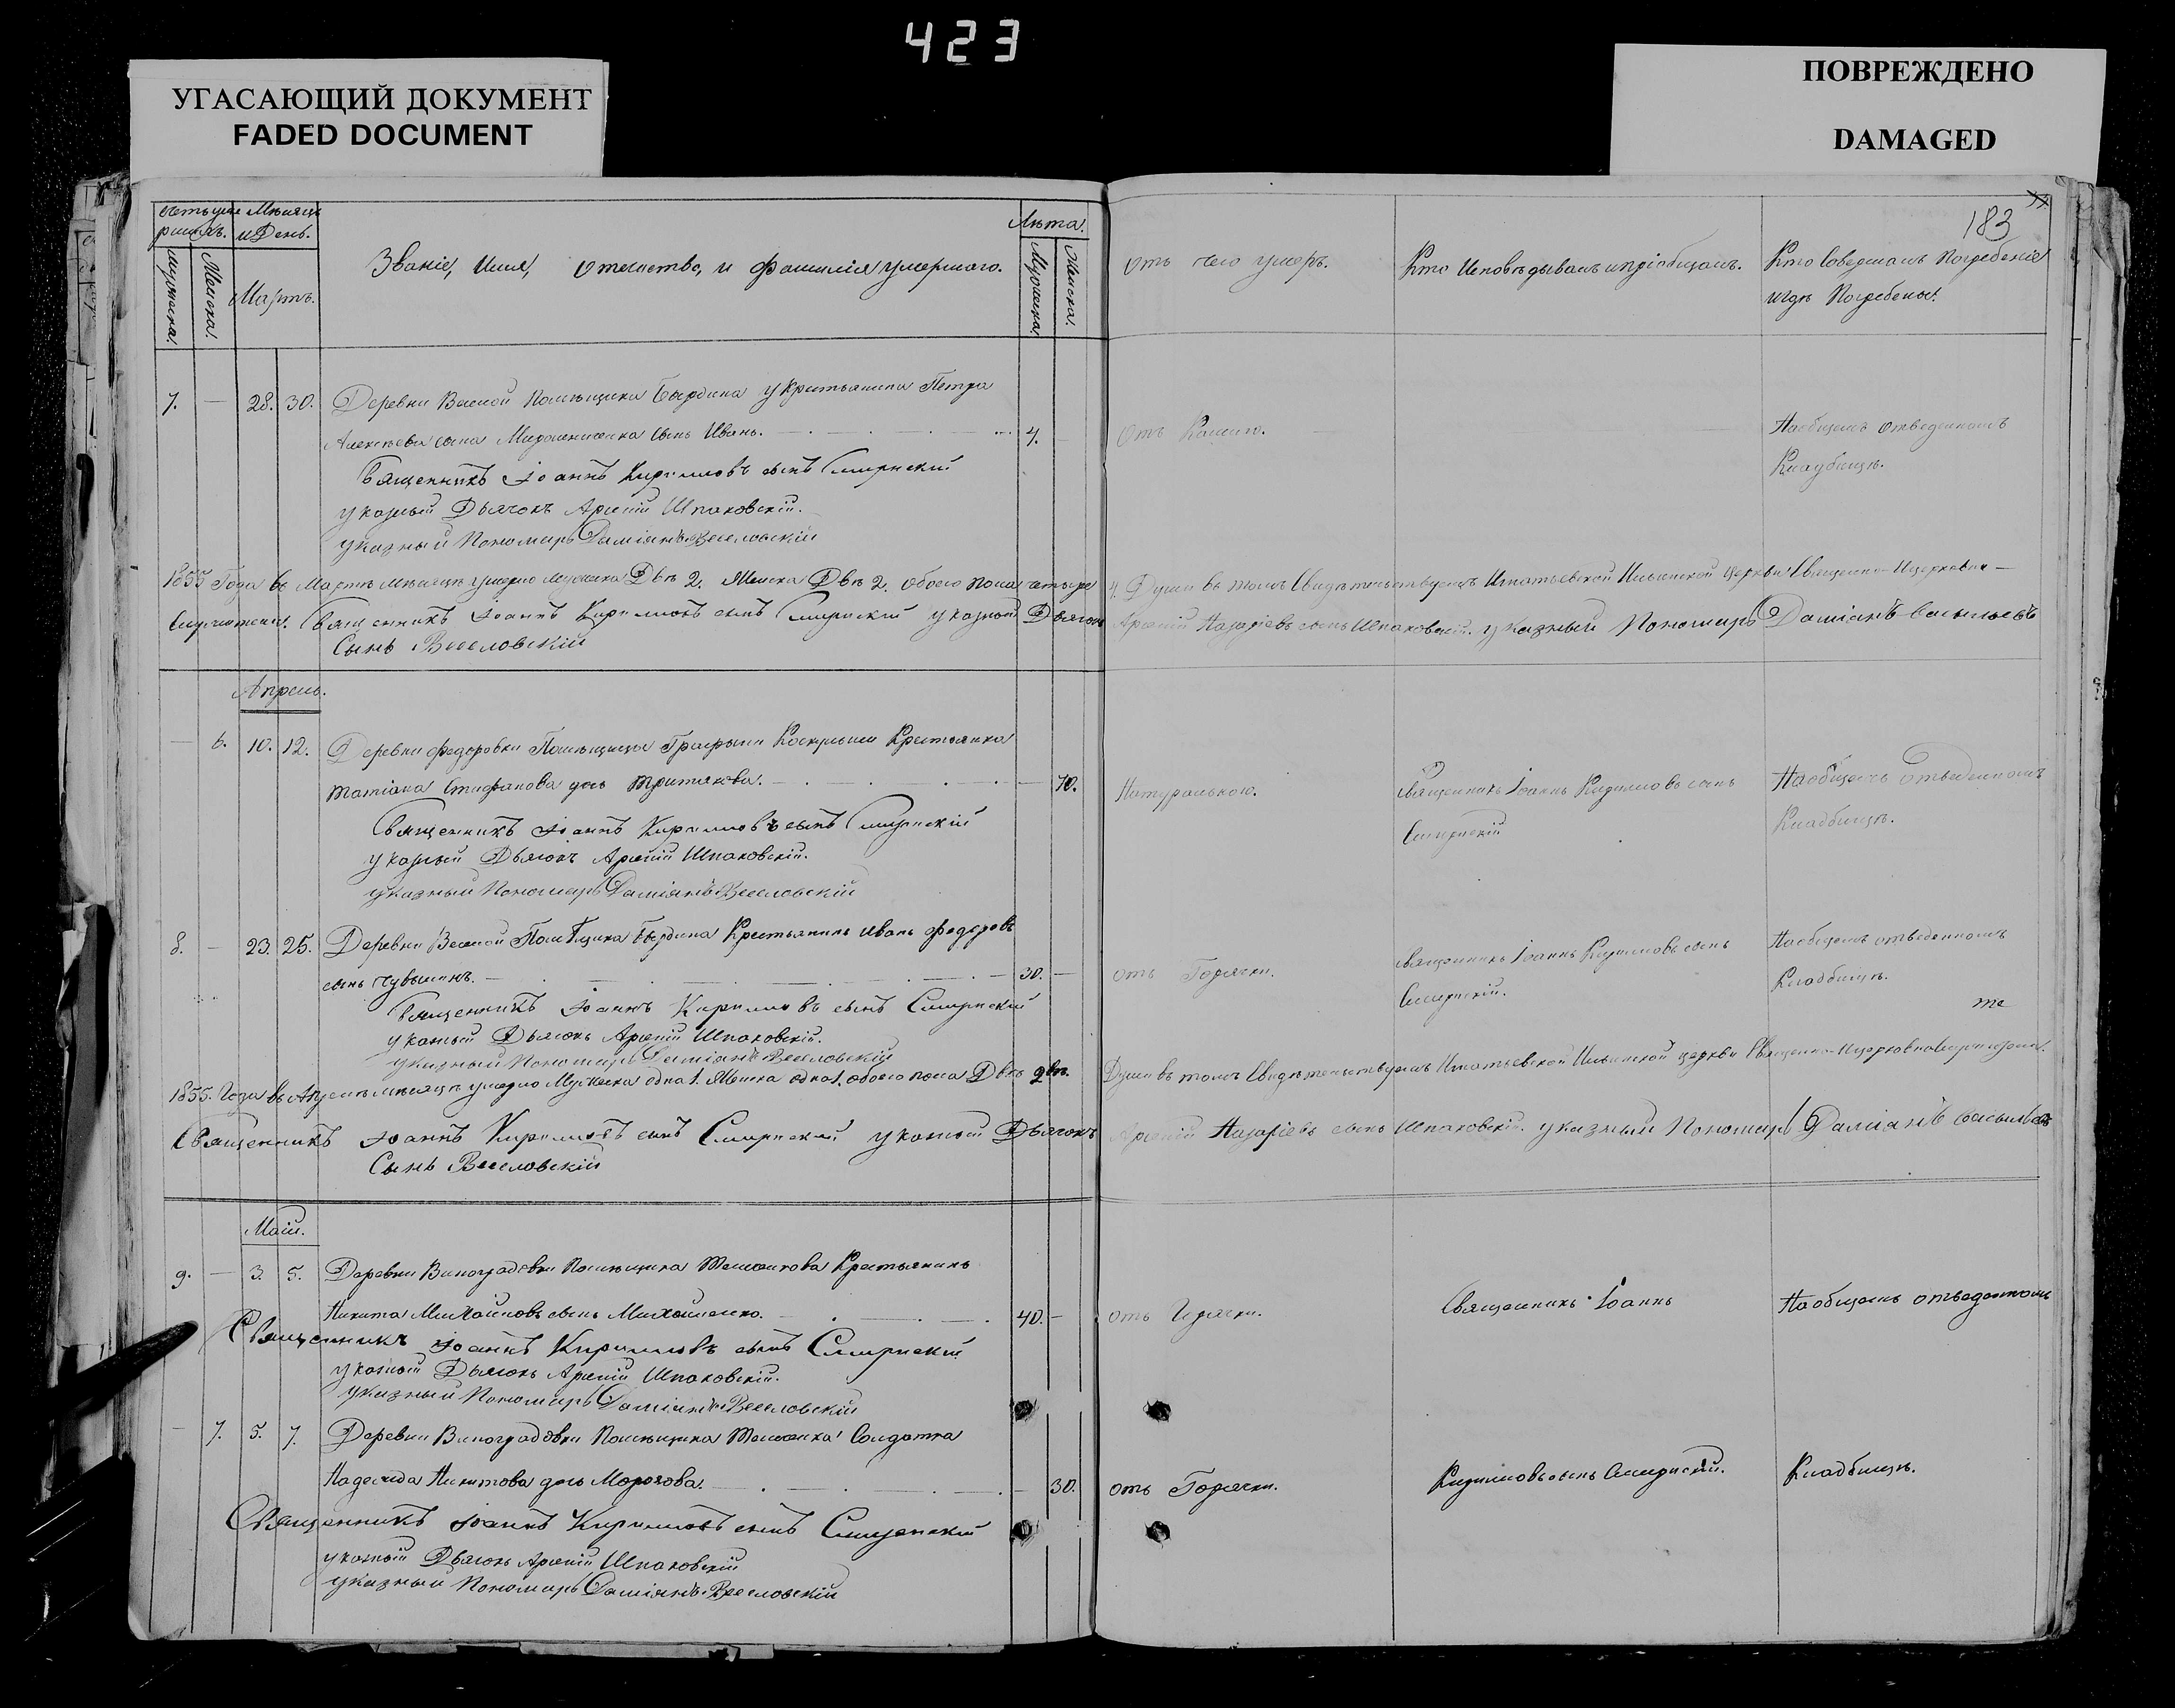 423
УГАСАЮЩИЙ ДОКУМЕНТ
FADED DOCUMENT
ПОВРЕЖДЕНО
DAMAGED
183
Мѣсяцъ
и День.
Мартъ.
Мужеска.
Женска.
Званіе, Имя, Отечество, и фамилія умершаго.
Лѣта.
Мужеска.
Женска.
Отъ чего умеръ.
Кто Исповѣдывалъ и пріобщалъ.
Кто Совершалъ Погребеніе
и гдѣ Погребены.
7. — 28. 30. Деревни Помѣщика у Крестьянина Петра
Алексѣева сына сынъ Иванъ. 4.
Священникъ Іоаннъ Кирилловъ сынъ Смирнскій
указный Дьячокъ Арсеній Шпаковскій.
указный Пономарь Даміанъ Веселовскій
Отъ Кашлю.
На общемъ отведенномъ
Кладбищѣ.
1855 Года въ Мартѣ мѣсяцѣ умерло мужеска Двѣ 2. Женска Двѣ 2. обоего пола четыре 4. Души въ томъ Свидѣтельствуемъ Игнатьевской Ильинской церкви Священно-Церковно-
Служители. Священникъ Іоаннъ Кирилловъ сынъ Смирнскій указный Дьячокъ Арсеній Назаріевъ сынъ Шпаковскій. указный Пономарь Даміанъ Васильевъ
Сынъ Веселовскій
Апрель.
— 6. 10. 12. Деревни Федоровки Помѣщицы Графини Крестьянка
Татіана Стефанова дочь Третякова. — 70.
Священникъ Іоаннъ Кирилловъ сынъ Смирнскій
указный Дьячокъ Арсеній Шпаковскій.
указный Пономарь Даміанъ Веселовскій
Натуральною.
Священникъ Іоаннъ Кирилловъ сынъ
Смирнскій
На общемъ Отведенномъ
Кладбищѣ.
8. — 23. 25. Деревни Помѣщика Крестьянинъ Иванъ Федоровъ
сынъ Чувылинъ. 30. —
Священникъ Іоаннъ Кирилловъ сынъ Смирнскій
указный Дьячокъ Арсеній Шпаковскій.
указный Пономарь Даміанъ Веселовскій
отъ Горячки.
Священникъ Іоаннъ Кирилловъ сынъ
Смирнскій.
На общемъ отведенномъ
Кладбищѣ.
1855. Года въ Апрелѣ мѣсяцѣ умерло Мужеска одна 1. Женска одна 1. обоего пола Двѣ двѣ. Души въ томъ Свидѣтельствуемъ Игнатьевской Ильинской церкви Священно-Церковно служители.
Священникъ Іоаннъ Кирилловъ сынъ Смирнскій указный Дьячокъ Арсеній Назаріевъ сынъ Шпаковскій. указный Пономарь Даміанъ Васильевъ
Сынъ Веселовскій
Маій.
9. — 3. 5. Деревни Виноградовки Помѣщика Крестьянинъ
Никита Михайловъ сынъ Михайленко. 40. —
Священникъ Іоаннъ Кирилловъ сынъ Смирнскій
указный Дьячокъ Арсеній Шпаковскій.
указный Пономарь Даміанъ Веселовскій
отъ Горячки.
Священникъ Іоаннъ
На общемъ отведенномъ
— 7. 5. 7. Деревни Виноградовки Помѣщика Солдатка
Надежда Никитова дочь Морозова. — 30.
отъ Горячки.
Кирилловъ сынъ Смирнскій.
Кладбищѣ.
Священникъ Іоаннъ Кирилловъ сынъ Смирнскій
указный Дьячокъ Арсеній Шпаковскій
указный Пономарь Даміанъ Веселовскій